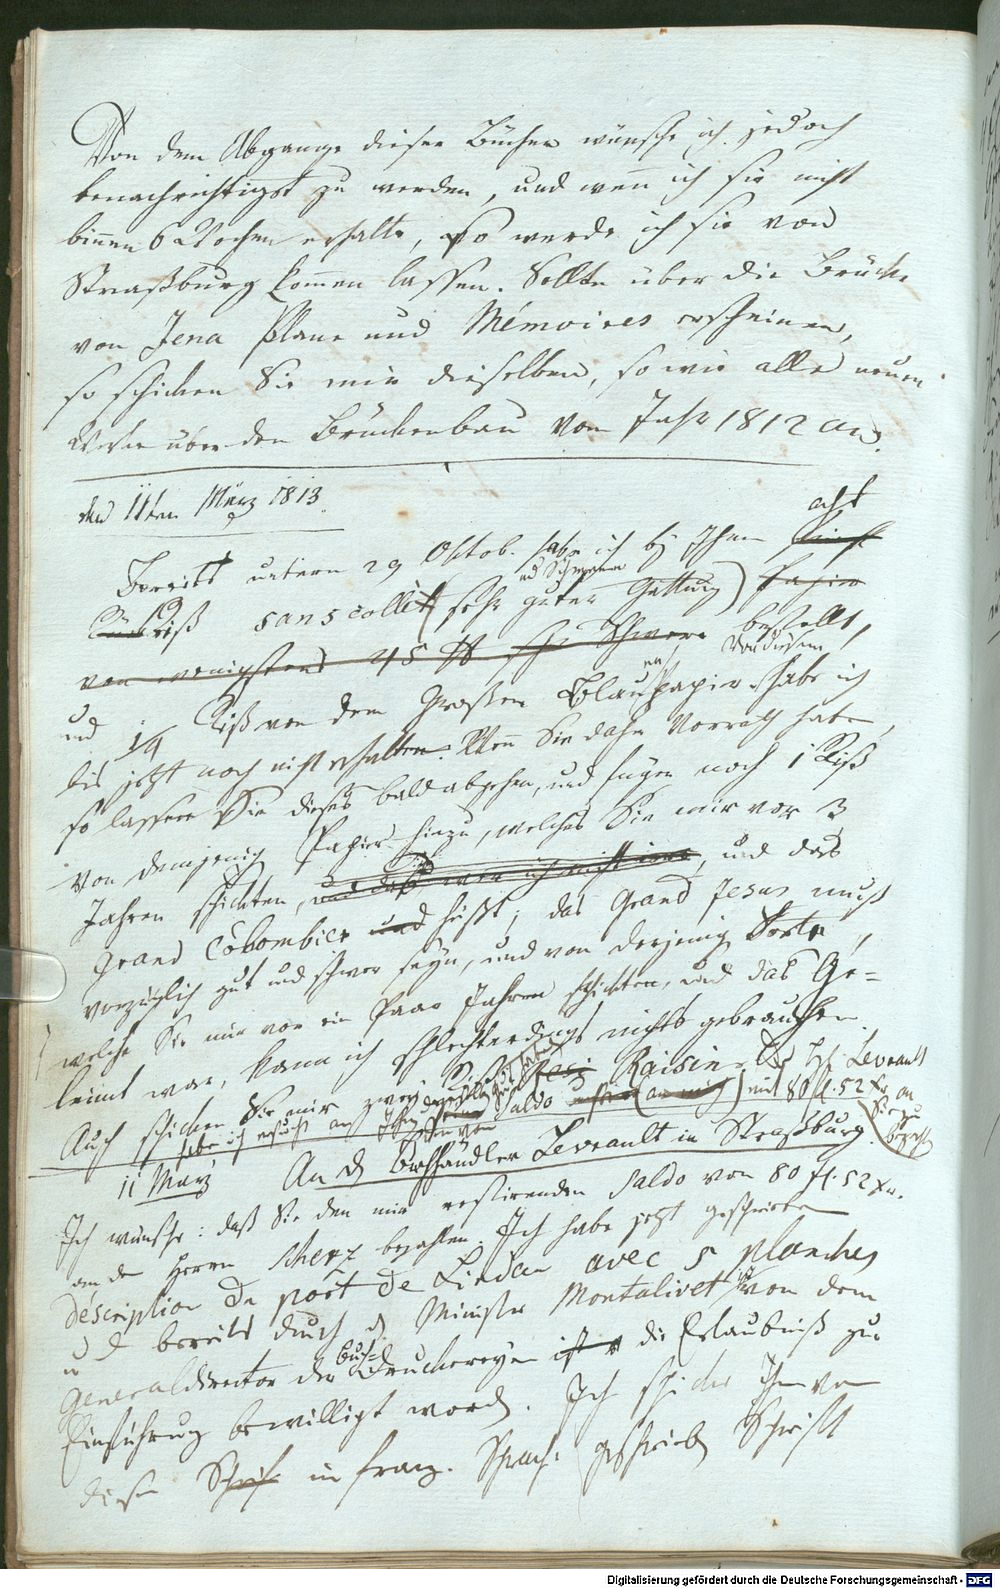 Von dem Abgange dieser Bücher wünsche ich jedoch
benachrichtigt zu werden, und wenn ich sie nicht
binnen 6 Wochen erhalte, so werde ich sie von
Straßburg kommen lassen. Sollte über die Brücke
von Jena Plane und Mémoires erscheinen,
so schicken Sie mir dieselben, so wie alle neuen
Werke über den Brückenbau vom Jahr 1812 an.
den 11ten März 1813.
acht
Bereits unterm 29 Oktob. habe ich bey Ihnen
und schwerer
Riß sans colle (sehr guter Gattung) Papier
von wenigstens 45 ℔ schwer bestellt,
Von diesem
und 1/4 Riß von dem Großen Blauenpapier habe ich
bis jetzt noch nicht erhalten. Wenn Sie daher Vorrath haben,
so lassen Sie dieses bald abgehen, und fügen noch 1 Riß
von demjenig Papier hinzu, welches Sie mir vor 3
Jahren schickten, und das
grand Colombier und heißt; das Grand Jesus muß
vorzüglich gut und schwer seyn, und von derjenig Sorte,
welche Sie mir vor ein Paar Jahren schickten, und das Ge=
leimt war, kann ich schlechterdings nichts gebrauchen.
Auch schicken Sie mir zwey Raisin. Hr. Levrault
habe ich ersucht an Saldo mit 80 fl. 52 xr. an
Sie zu
bezahlen
11 März An d Buchhändler Levrault in Straßburg.
Ich wünsche: daß Sie den mir restirenden Saldo von 80 fl. 52 xr.
an den Herrn Scherz bezahlen. Ich habe jetzt geschrieben
déscription du pôrt de Lindau avec 5 planches
und bereits durch d Minister Montalivet ist von dem
Buch=
Generaldirector der Druckereyen die Erlaubniß zur
Einführung bewilligt word. Ich schicke Ihnen von
dieser in franz. Sprache geschrieb Schrift
Digitalisierung gefördert durch die Deutsche Forschungsgemeinschaft - DFG